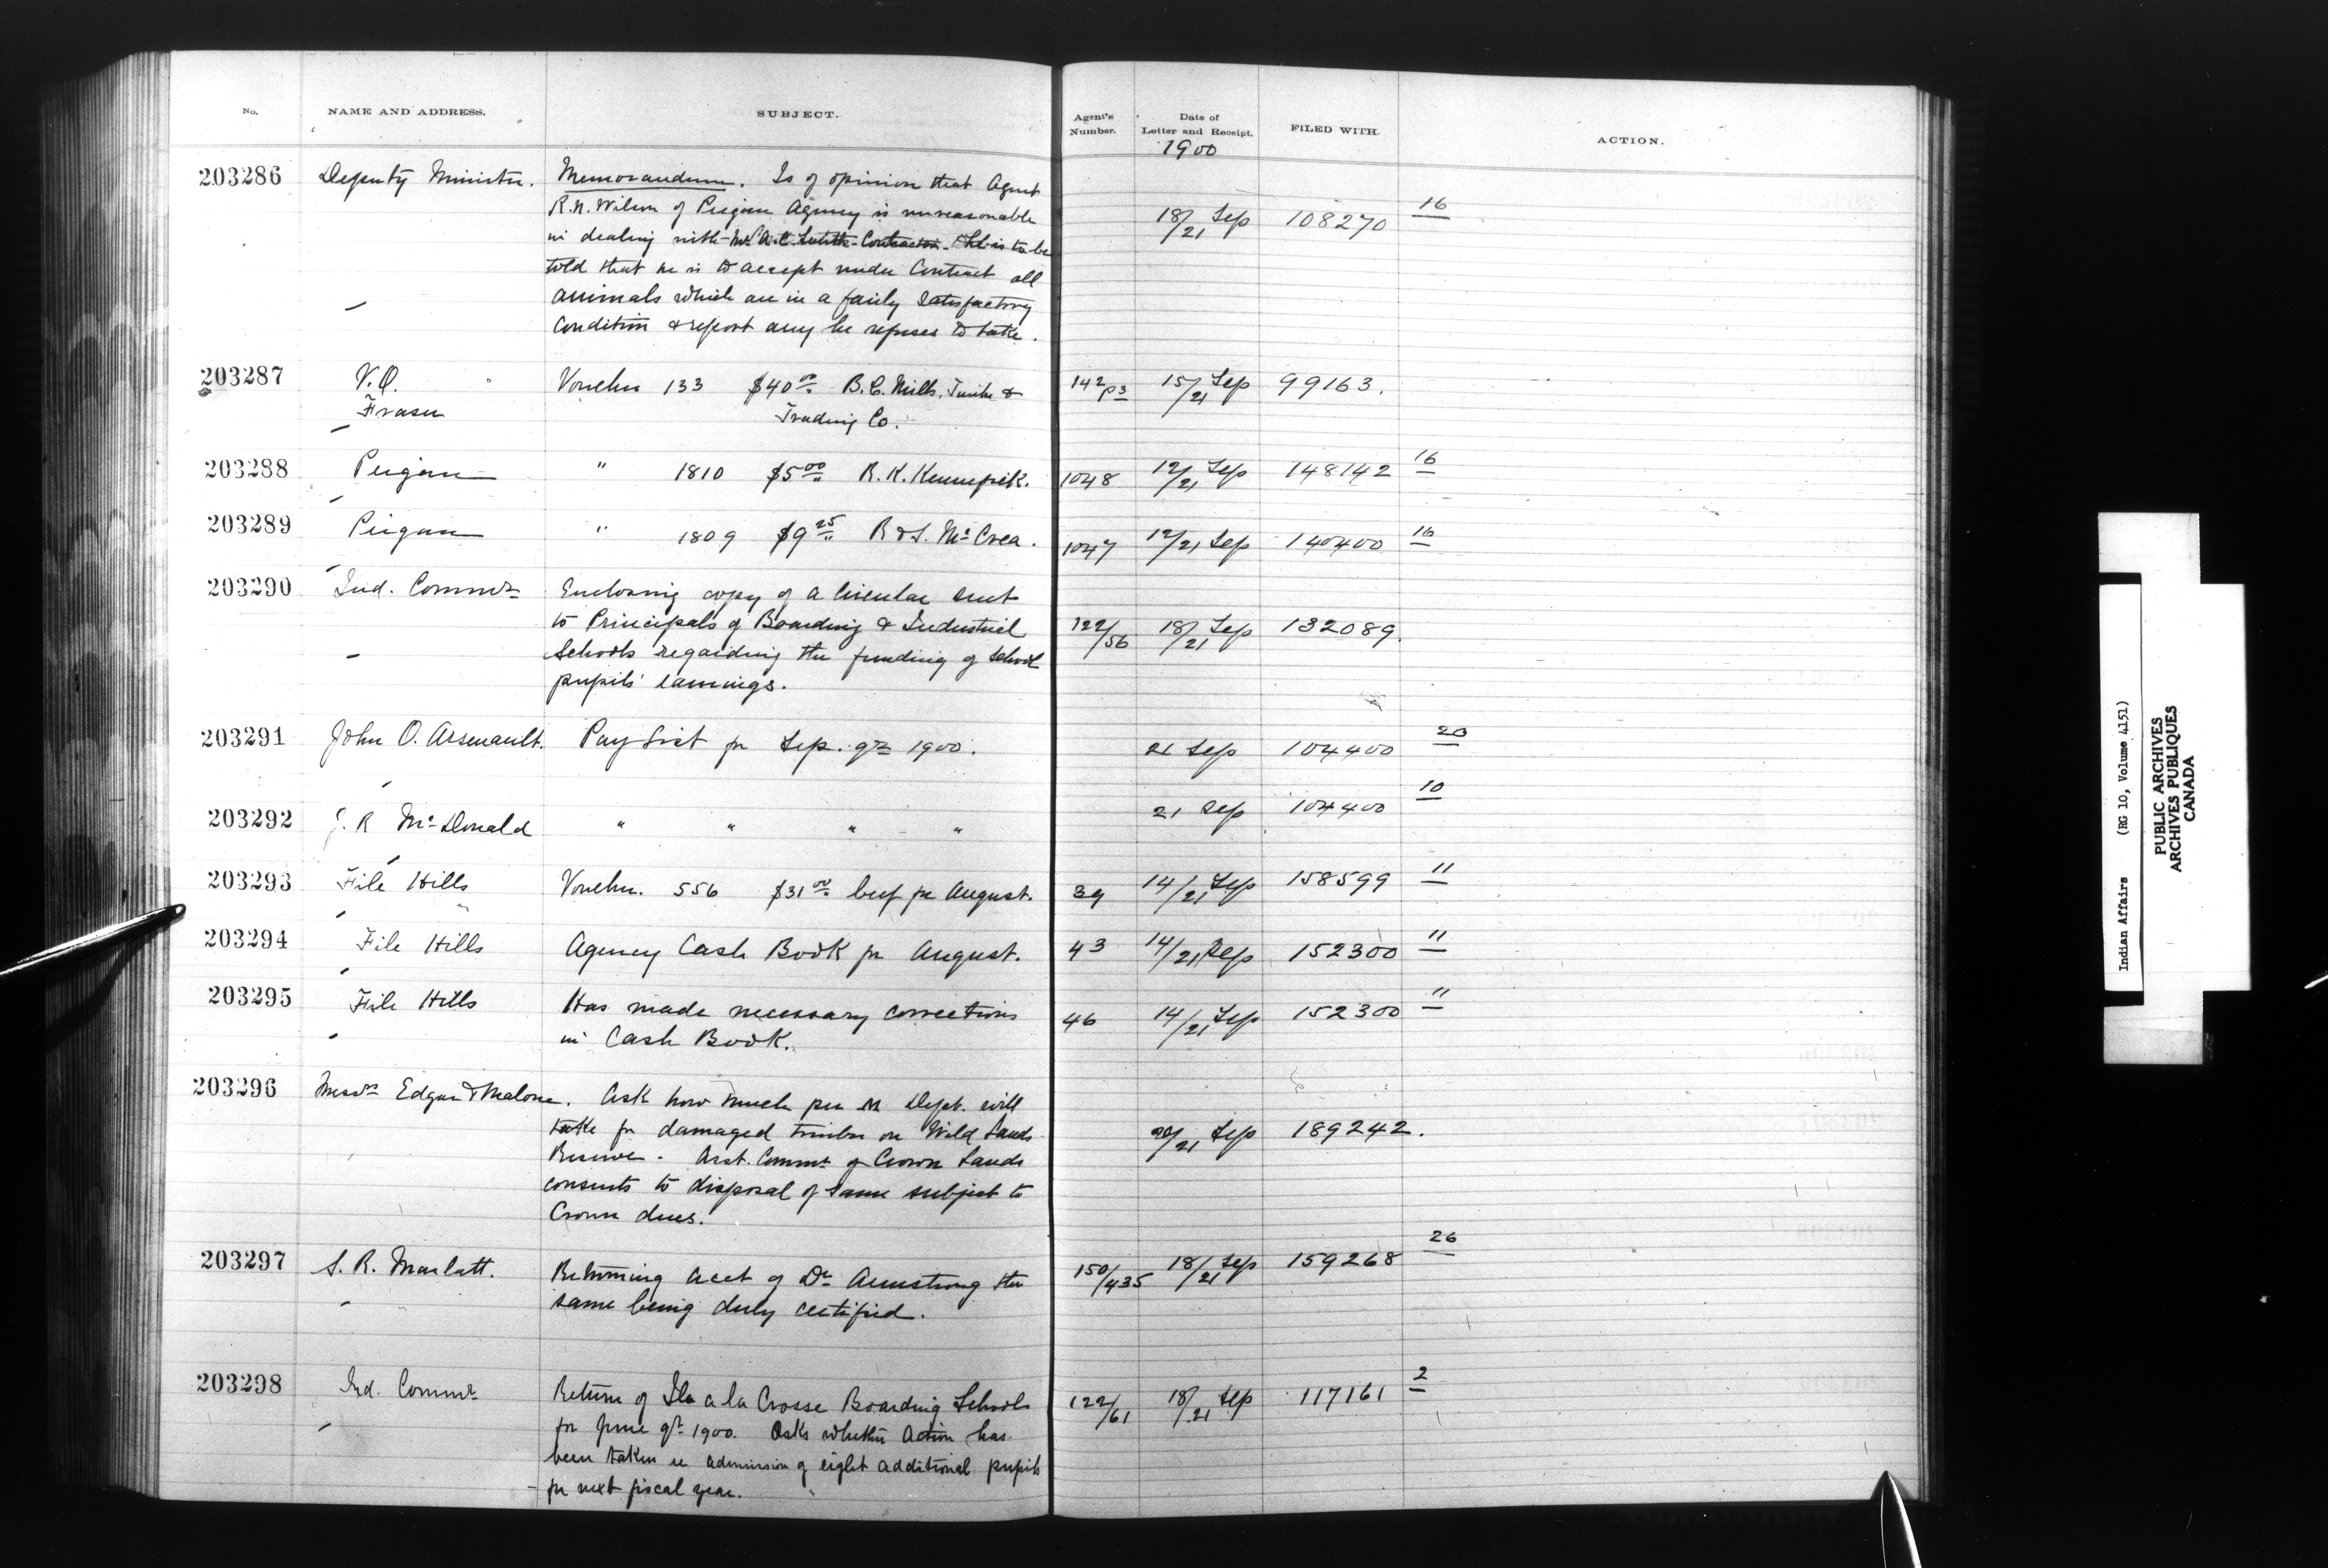 No. NAME AND ADDRESS. SUBJECT. Agent's Number. Date of Letter and Receipt. FILED WITH. ACTION.
1900
203286 Deputy Minister. Memorandum. Is of opinion that Agent
R.N. Wilson of Peigan Agency is unreasonable
in dealing with Contractor. He is to be
18/21 Sep 108270 16
told that he is to accept under Contract all
animals which are in a fairly satisfactory
condition & report any he refuses to take.
203287 V.O. Voucher 133 $40.00 B.C. Mills, Timber & 142 p3 15/21 Sep 99163.
Fraser Trading Co.
203288 Peigan " 1810 $5.00 R. K. 1048 12/21 Sep 148142 16
203289 Peigan " 1809 $9.25 R & S. McCrea. 1047 12/21 Sep 140400 16
203290 Ind. Commr Enclosing copy of a circular sent
to Principals of Boarding & Industrial 122/56 18/21 Sep 132089.
Schools regarding the funding of School
pupils' earnings.
203291 John O. Arsenault. Pay List for Sep. qr 1900. 21 Sep 104400 20
203292 J. R McDonald " " " " 21 Sep 104400 10
203293 File Hills Voucher. 556 $31.00 beef for August. 39 14/21 Sep 158599 11
203294 File Hills Agency Cash Book for August. 43 14/21 Sep 152300 11
203295 File Hills Has made necessary corrections 46 14/21 Sep 152300 11
in Cash Book.
203296 Messrs Edgar & Malone. Ask how much per M Dept. will
take for damaged timber on Wild Lands 20/21 Sep 189242.
Reserve. Asst. Commr of Crown Lands
consents to disposal of same subject to
Crown dues.
203297 S. R. Marlatt. Returning acct of Dr Armstrong the 150/435 18/21 Sep 159268 26
same being duly certified.
203298 Ind. Commr Return of Ile a la Crosse Boarding Schools 122/61 18/21 Sep 117161 2
for June qr 1900. Asks whether action has
been taken re admission of eight additional pupils
for next fiscal year.
Indian Affairs (RG 10, Volume 4151)
PUBLIC ARCHIVES
ARCHIVES PUBLIQUES
CANADA